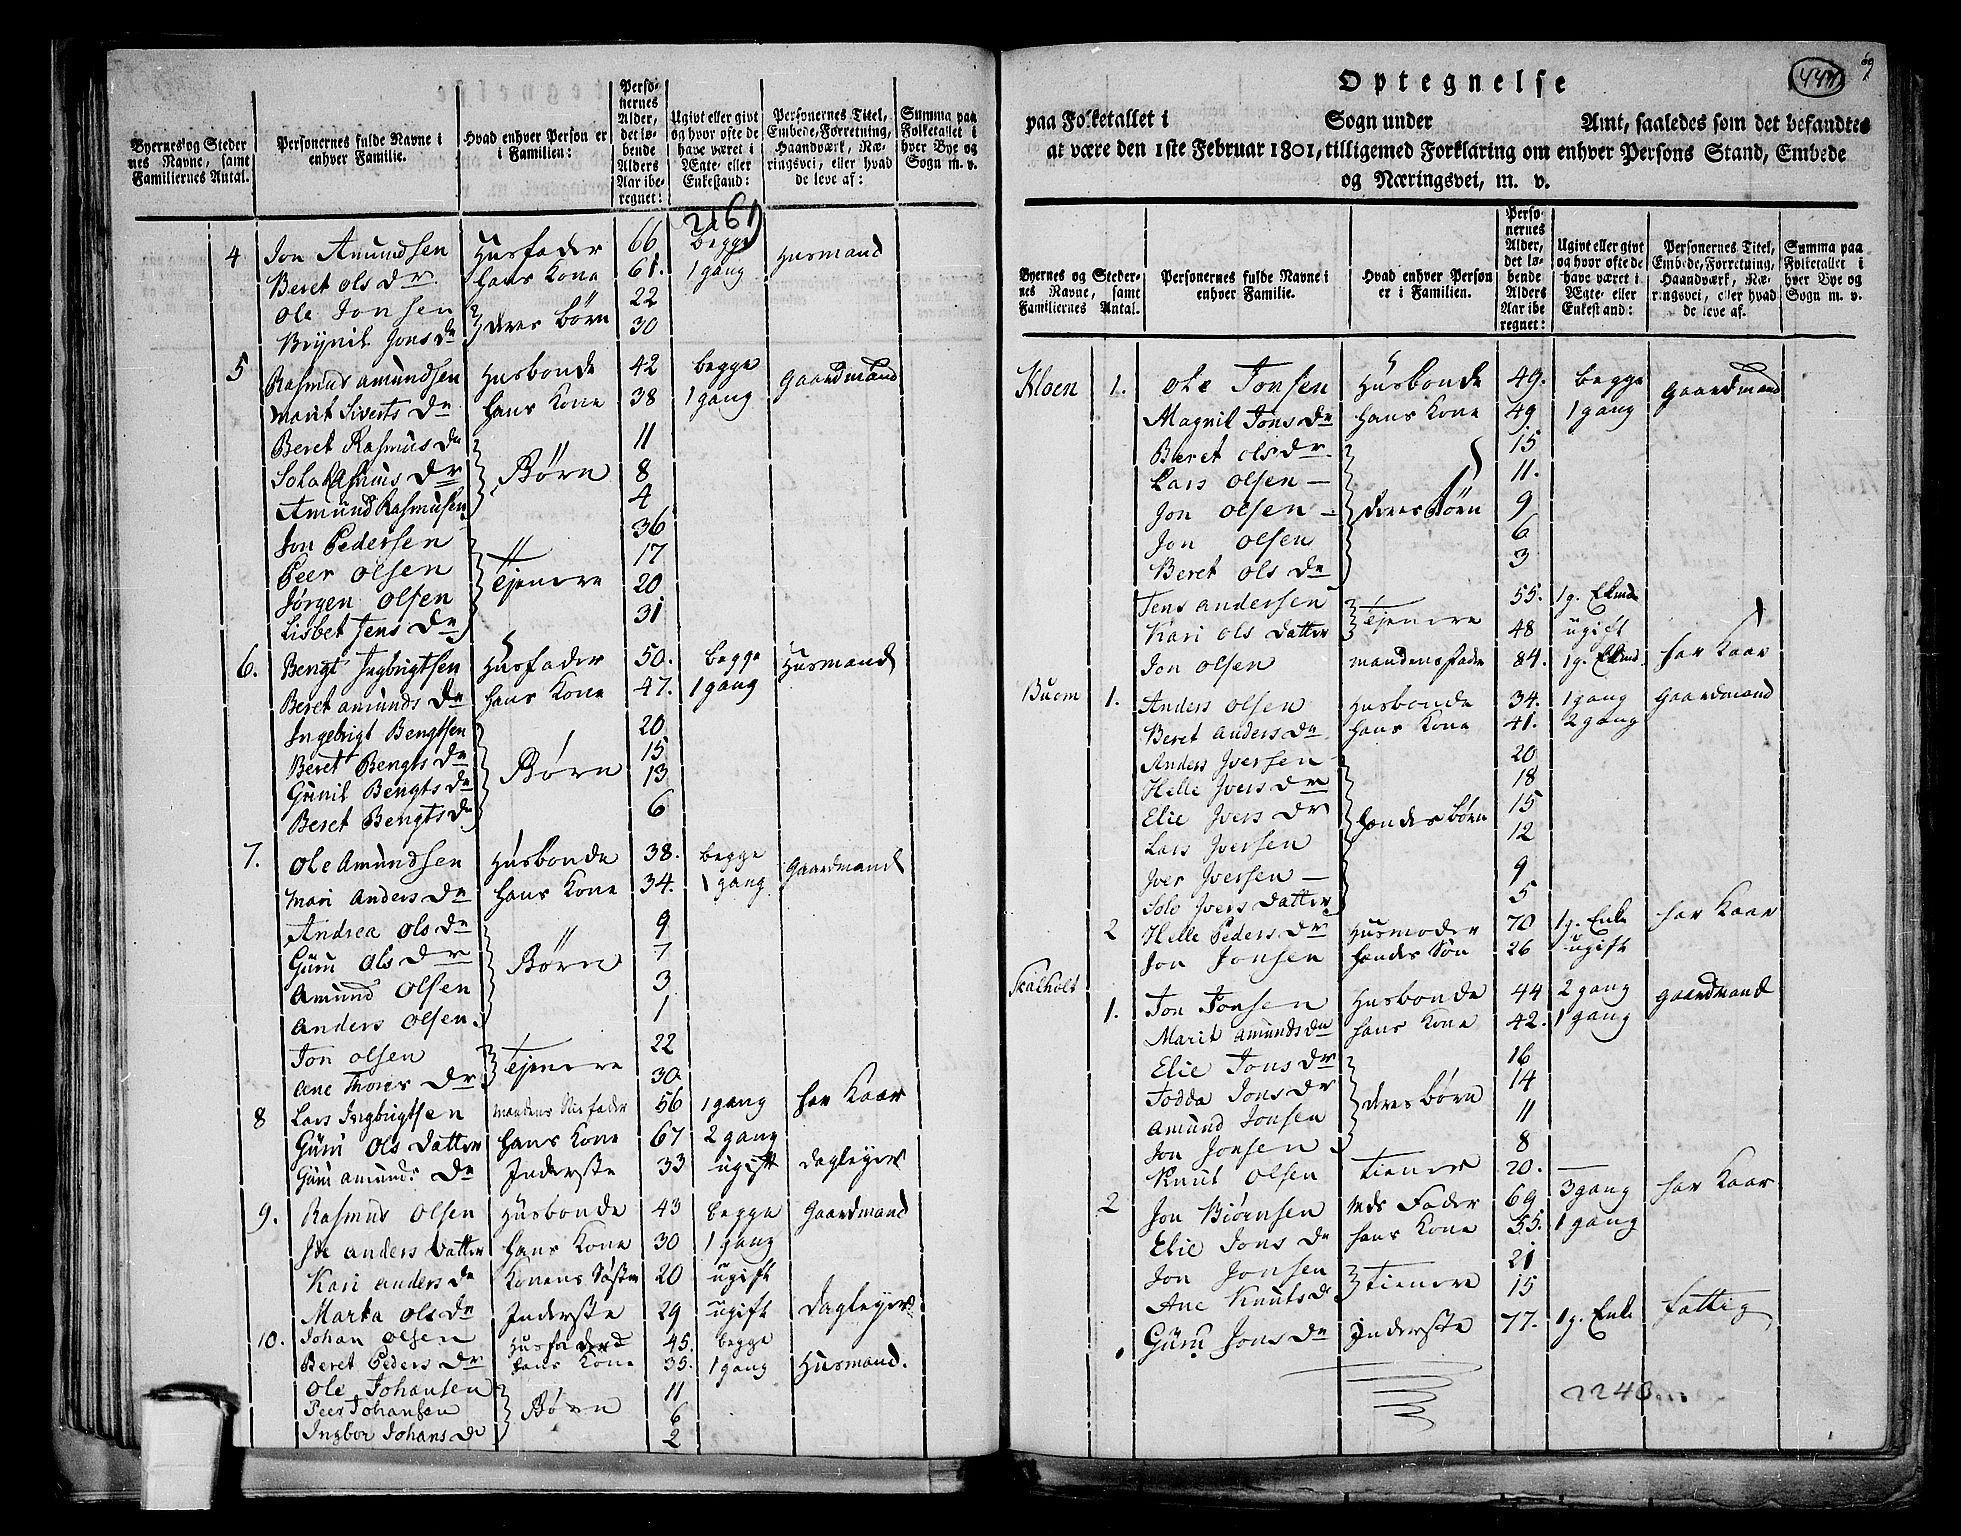 Byernes og Steder
nes Navne, samt
Familiernes Antal.
Personernes fulde Navne i
enhver Familie.
Hvad enhver Person er
i Familien:
Perso-
nernes
Alder,
det lø-
bende
Alders
Aar ibe-
regnet:
Ugivt eller givt
og hvor ofte de
have været i
Ægte- eller
Enkestand:
Personernes Titel,
Embede, Forretning,
Haandværk, Næ-
ringsvei, eller hvad
de leve af:
Summa paa
Folketallet i
hver Bye og
Sogn m. v.
2161
4 Jon Amundsen Husfader 66 begge Husmand
Beret Ols Dr. hans Kone 61. 1 gang
Ole Jonsen deres børn 22
Brynil Jons Dr 30
5 Rasmus Amundsen Husbonde 42 begge Gaardmand
Marit Siverts Dr hans Kone 38 1 gang
Beret Rasmus Dr 11
Rasmus Dr Børn 8
Amund Rasmusen 4
Jon Pedersen 36
Peer Olsen 17
Jørgen Olsen Tjenere 20
Lisbet Jens Dr 31
6. Bengt Ingbrigtsen Husfader 50. begge Husmand
Beret Amunds Dr hans Kone 47. 1 gang
Ingebrigt Bengtsen 20
Beret Bengts Dr 15
Gunil Bengts Dr Børn 13
Beret Bengts Dr 6
7. Ole Amundsen Husbonde 38. begge Gaardmand
Mari Anders Dr hans Kone 34. 1 gang
Andrea Ols Dr 9
Guru Ols Dr Børn 7
Amund Olsen 3
Anders Olsen. 1
Jon Olsen Tjenere 22
Ane Dr 30
8 Lars Ingbrigtsen mandens Stiffader 56 1 gang har Kaar
Guru Ols Datter hans Kone 67 2 gang
Guru Amunds Dr Inderste 33 ugift Dagleyer
9. Rasmus Olsen Husbonde 43 begge Gaardmand
Anders Datter hans Kone 30 1 gang
Kari Anders Dr Konens Søster 20 ugift
Marta Ols Dr Inderste 29 ugift Dagleyer
10. Johan Olsen Husfader 45. begge
Beret Peders Dr hans Kone 35. 1 gang Husmand.
Ole Johansen 11
Peer Johansen Børn 6
Ingbor Johans Dr 2
Optegnelse
paa Folketallet i Sogn under Amt, saaledes som det befandtes
at være den 1ste Februar 1801, tilligemed Forklaring om enhver Persons Stand, Embede
og Næringsvei, m. v.
Byernes og Steder-
nes Navne, samt
Familiernes Antal.
Personernes fulde Navne i
enhver Familie.
Hvad enhver Person
er i Familien.
Perso-
nernes
Alder,
det lø-
bende
Alders
Aar ibe
regnet:
Ugivt eller givt
og hvor ofte de
have været i
Ægte- eller
Enkestand:
Personernes Titel,
Embede, Forretning,
Haandværk, Næ-
ringsvei, eller hvad
de leve af.
Summa paa
Folketallet i
hver Bye og
Sogn m. v.
Kloen 1. Ole Jonsen Husbonde 49. begge Gaardmand
Magnil Jons Dr hans Kone 49 1 gang
Beret Ols Dr. 15
Lars Olsen – 11.
Jon Olsen – deres børn 9
Jon Olsen 6
Beret Ols Dr 3
Jens Andersen Tjenere 55. 1 g. Ekmd
Kari Ols Datter 48 ugift
Jon Olsen mandens fader 84. 1 g. Ekmd. har Kaar
Buom 1. Anders Olsen Husbonde 34. 1 gang Gaardmand
Beret Anders Dr hans Kone 41. 2 gang
Anders Iversen 20
Helle Ivers Dr 18
Elie Ivers Dr hendes børn 15
Lars Iversen 12
Iver Iversen – 9
Ivers Datter 5
2 Helle Peders Dr Husmoder 70 1 g. Enke har Kaar
Jon Jonsen hendes Søn 26 ugift
Skalholt
1. Jon Jonsen Husbonde 44 2 gang Gaardmand
Marit Amunds Dr hans Kone 42. 1 gang
Elie Jons Dr 16
Jons Dr deres børn 14
Amund Jonsen 11
Jon Jonsen 8
Knut Olsen tiener 20. —
2 Jon Biørnsen Fader 69 3 gang har Kaar
Elie Jons Dr hans Kone 55. 1 gang
Jon Jonsen tienere 21
Ane Knuts Dr 15
Guru Jons Dr Inderste 77. 1 g. Enke fattig
2240